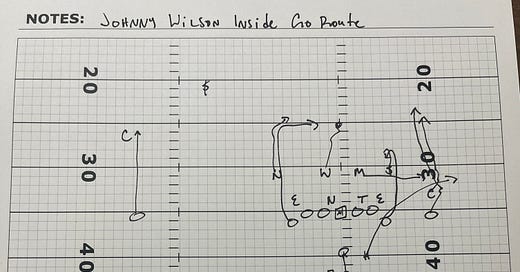 NOTES: JOHNNY WILSON INSIDE GO ROUTE
20 20
$
C
30 N W M $ 30
E N T E C
40 40